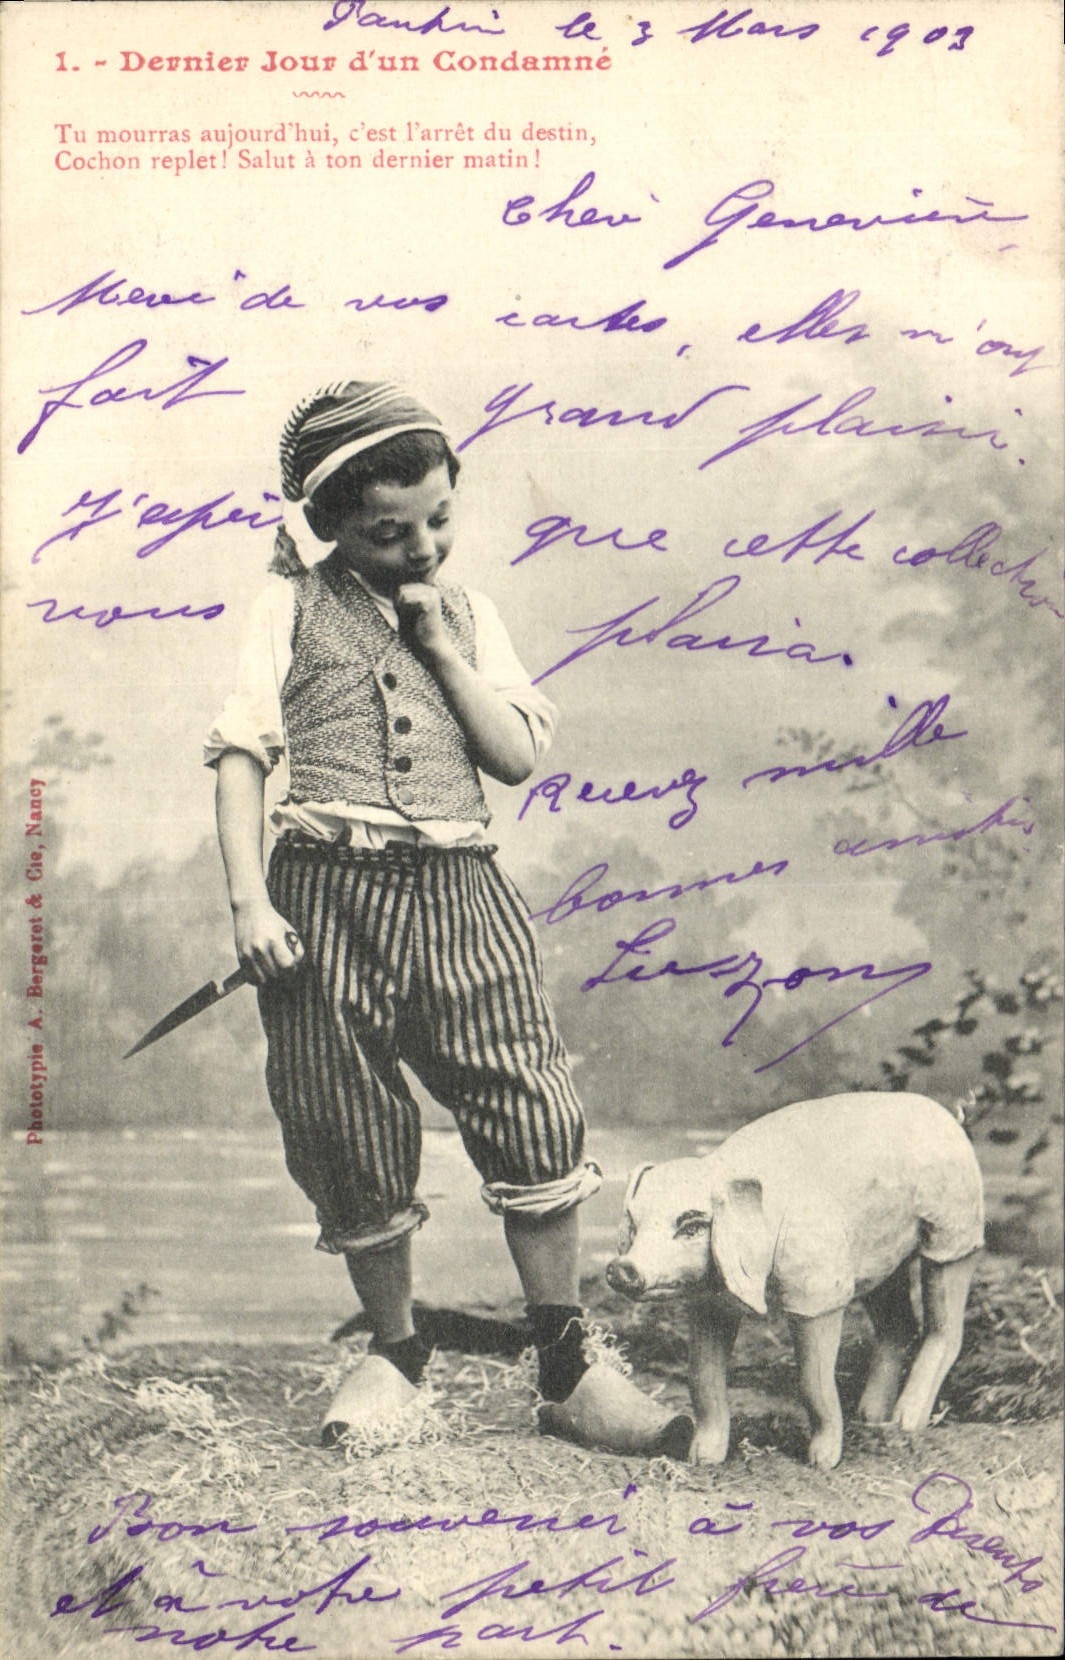 le 3 Mars 1903
1. - Dernier Jour d'un Condamné
Tu mourras aujourd'hui, c'est l'arrêt du destin,
Cochon replet! Salut à ton dernier matin!
Chère Geneviève
Merci de vos cartes, elles m'ont
fait grand plaisir.
J'espère que cette collection
vous plaira.
Recevez mille
bonnes amitiés
Suzon
Phototypie A. Bergeret & Cie, Nancy
Bon souvenir à vos Parents
et à votre petit frère de
notre part.